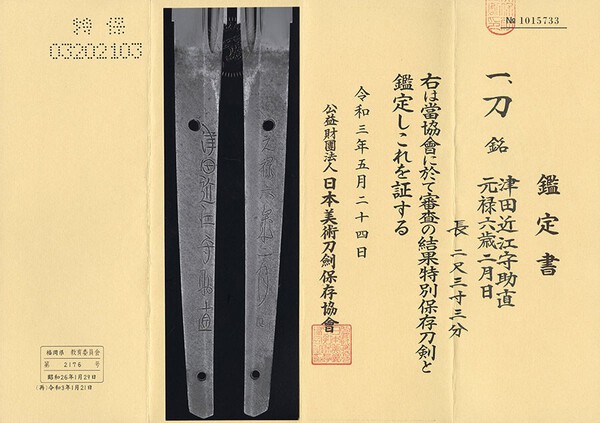 № 1015733
鑑定書
一、刀 銘 津田近江守助直
元禄六歳二月日
長 二尺三寸三分
右は當協會に於て審査の結果特別保存刀剣と
鑑定しこれを証する
令和三年五月二十四日
公益財團法人 日本美術刀劍保存協會
津田近江守助直
特保
03202103
福岡県 教育委員会
第 2176 号
昭和26年1月29日
(再)令和3年1月21日